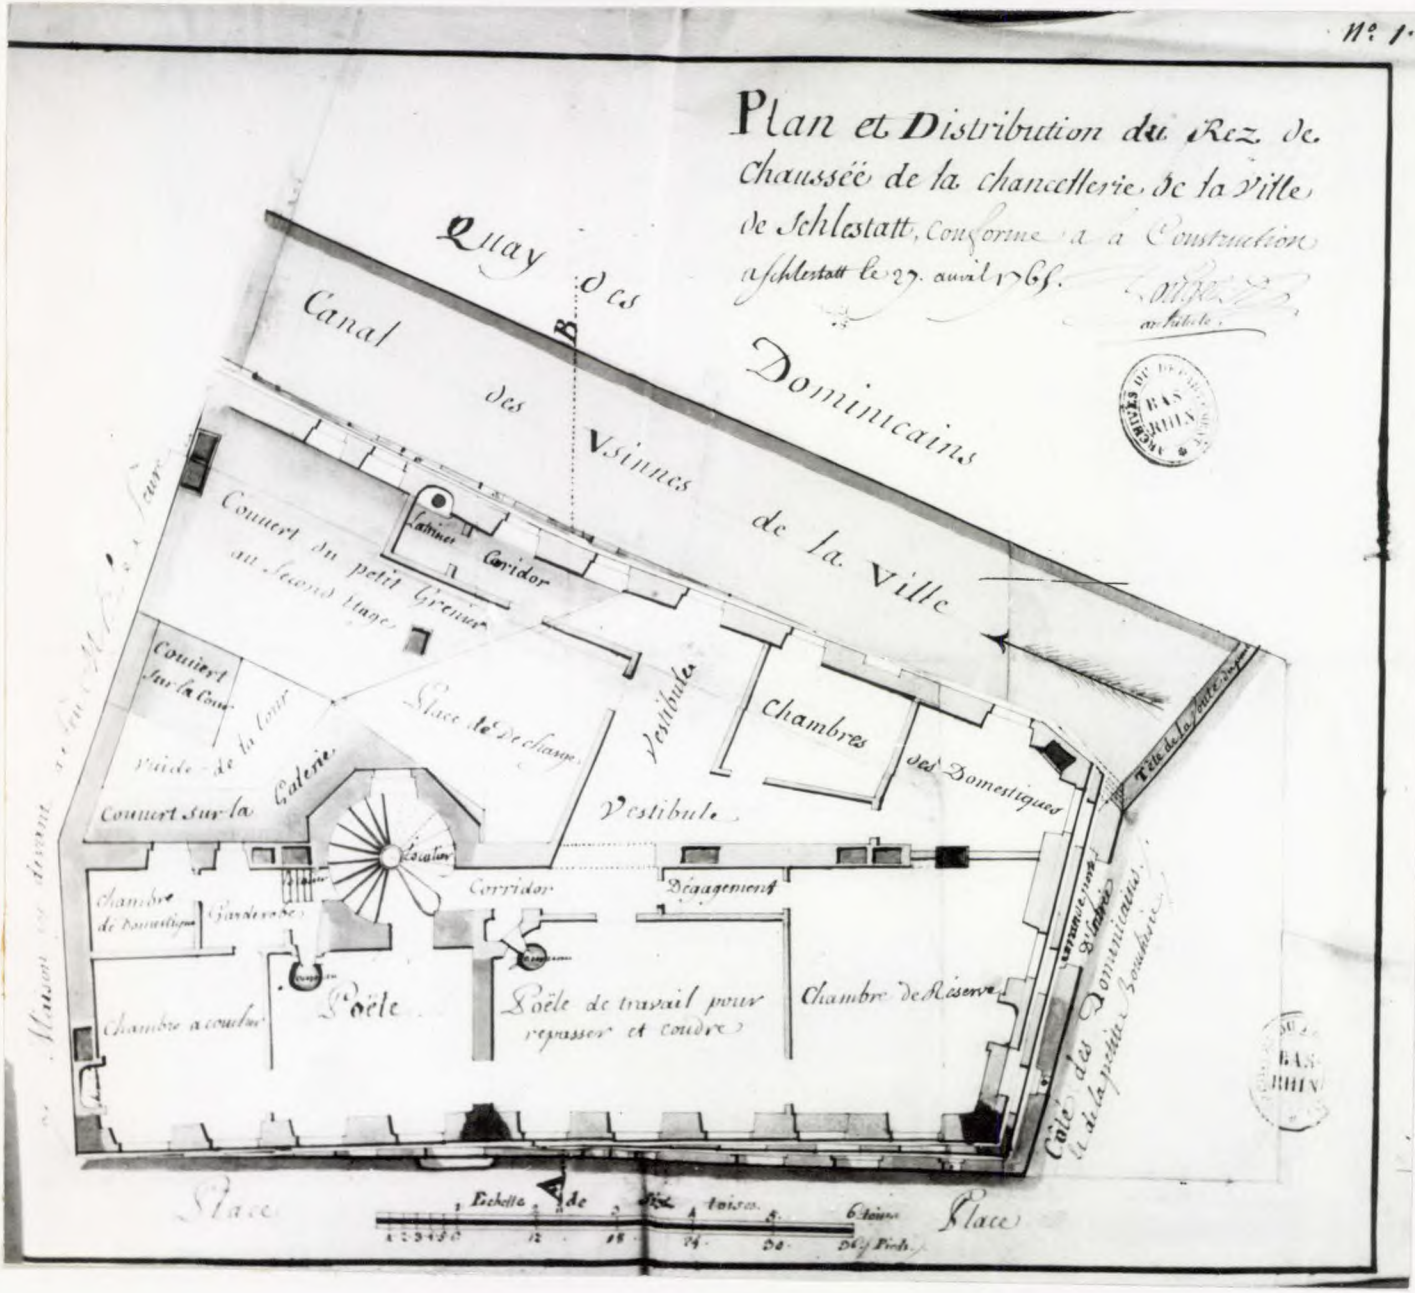 Nº 1.
Plan et Distribution du Rez de
Chausséë de la chancellerie de la Ville
de Schlestatt, conforme a la Construction
a Schlestatt le 27. avril 1765.
architecte.
ARCHIVES DU DEPARTEMENT
BAS-
RHIN
Quay des
Dominicains
B
Canal
des
Usinnes
de la Ville
Tête de la voute du pont
Couvert du petit Grenier
au Second Etage
Latrines
Coridor
Couvert
Sur la Cour
vuide de la Cour
Couvert sur la
Galerie
Place de Decharge
Vestibule
Vestibule
Chambres
des Domestiques
Escalier
Corridor
Dégagement
Chambre
de Domestique
Garderobe
Chambre a coucher
Poële
Poële de travail pour
repasser et coudre
Chambre de Réserve
D'Entrée
Côté des Dominicains
de la petite Boucherie
Maison
BAS-
RHIN
Place
A
Place
Echelle de Six toises
4 5 6 toises
1 2 3 4 5 6 12 18 24 30 36 Pieds